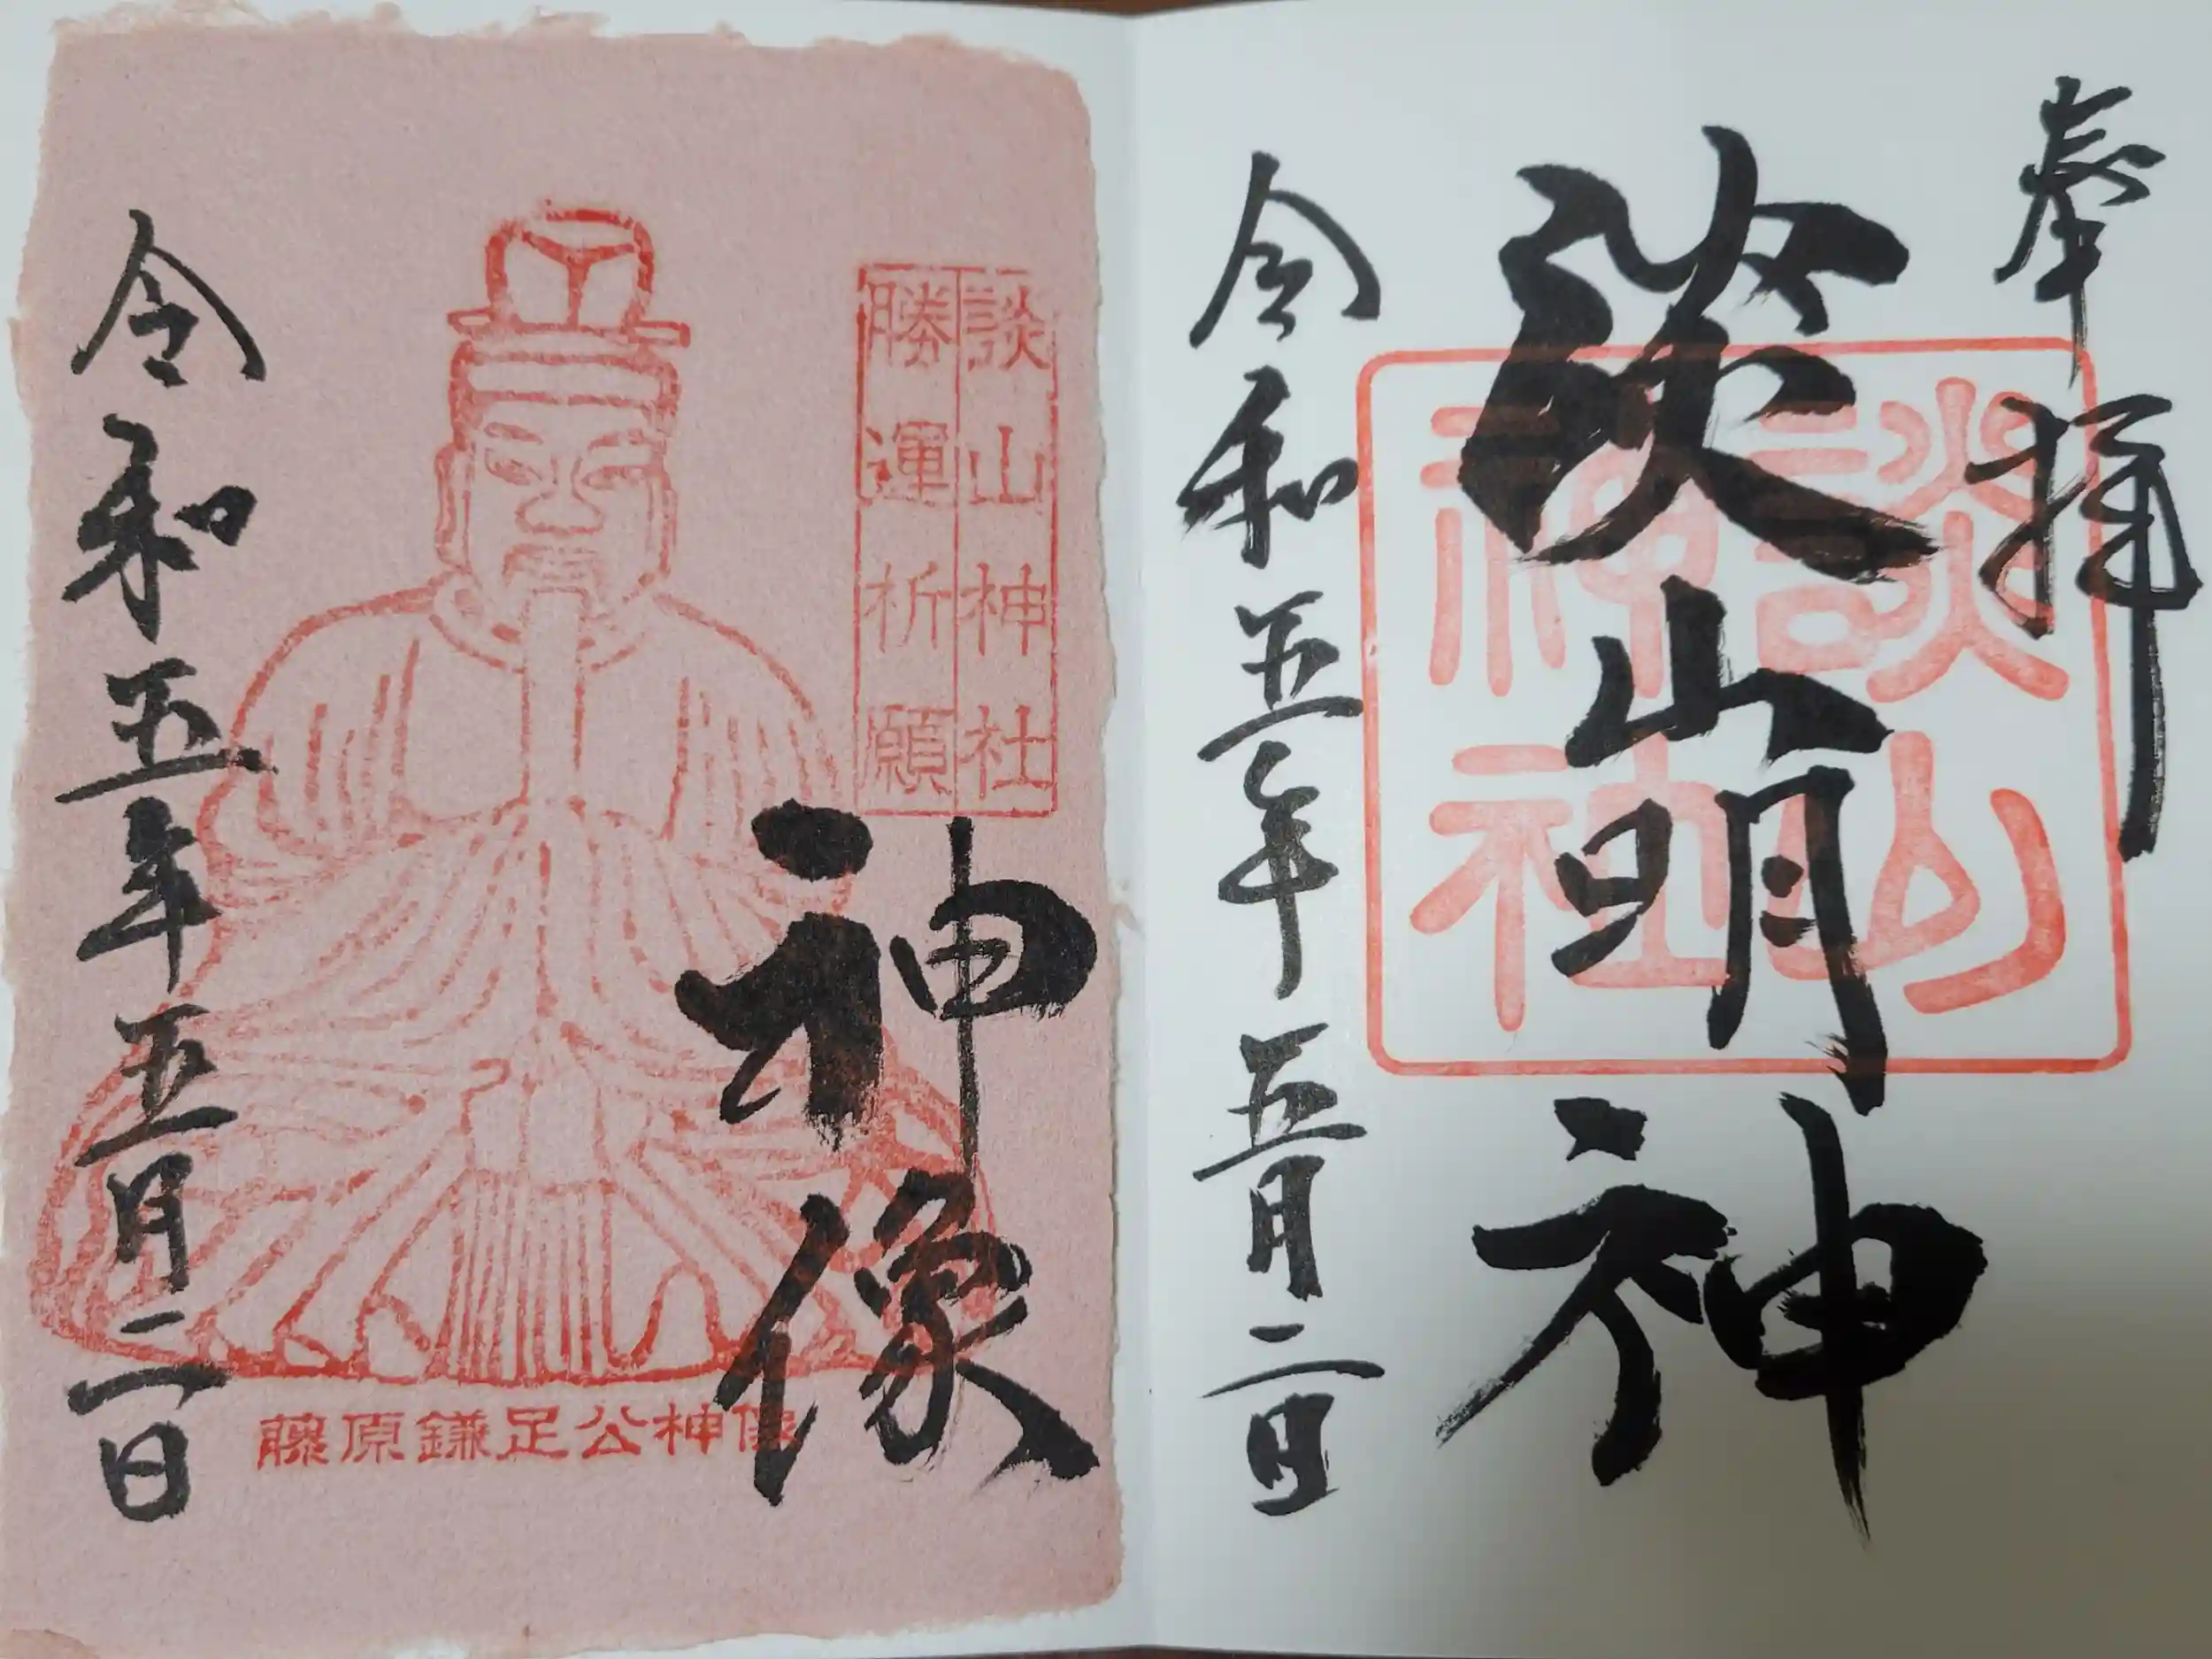 奉拝
談山神社
淡山明神
令和五年五月二日
談山神社
勝運祈願
神像
藤原鎌足公神像
令和五年五月二日